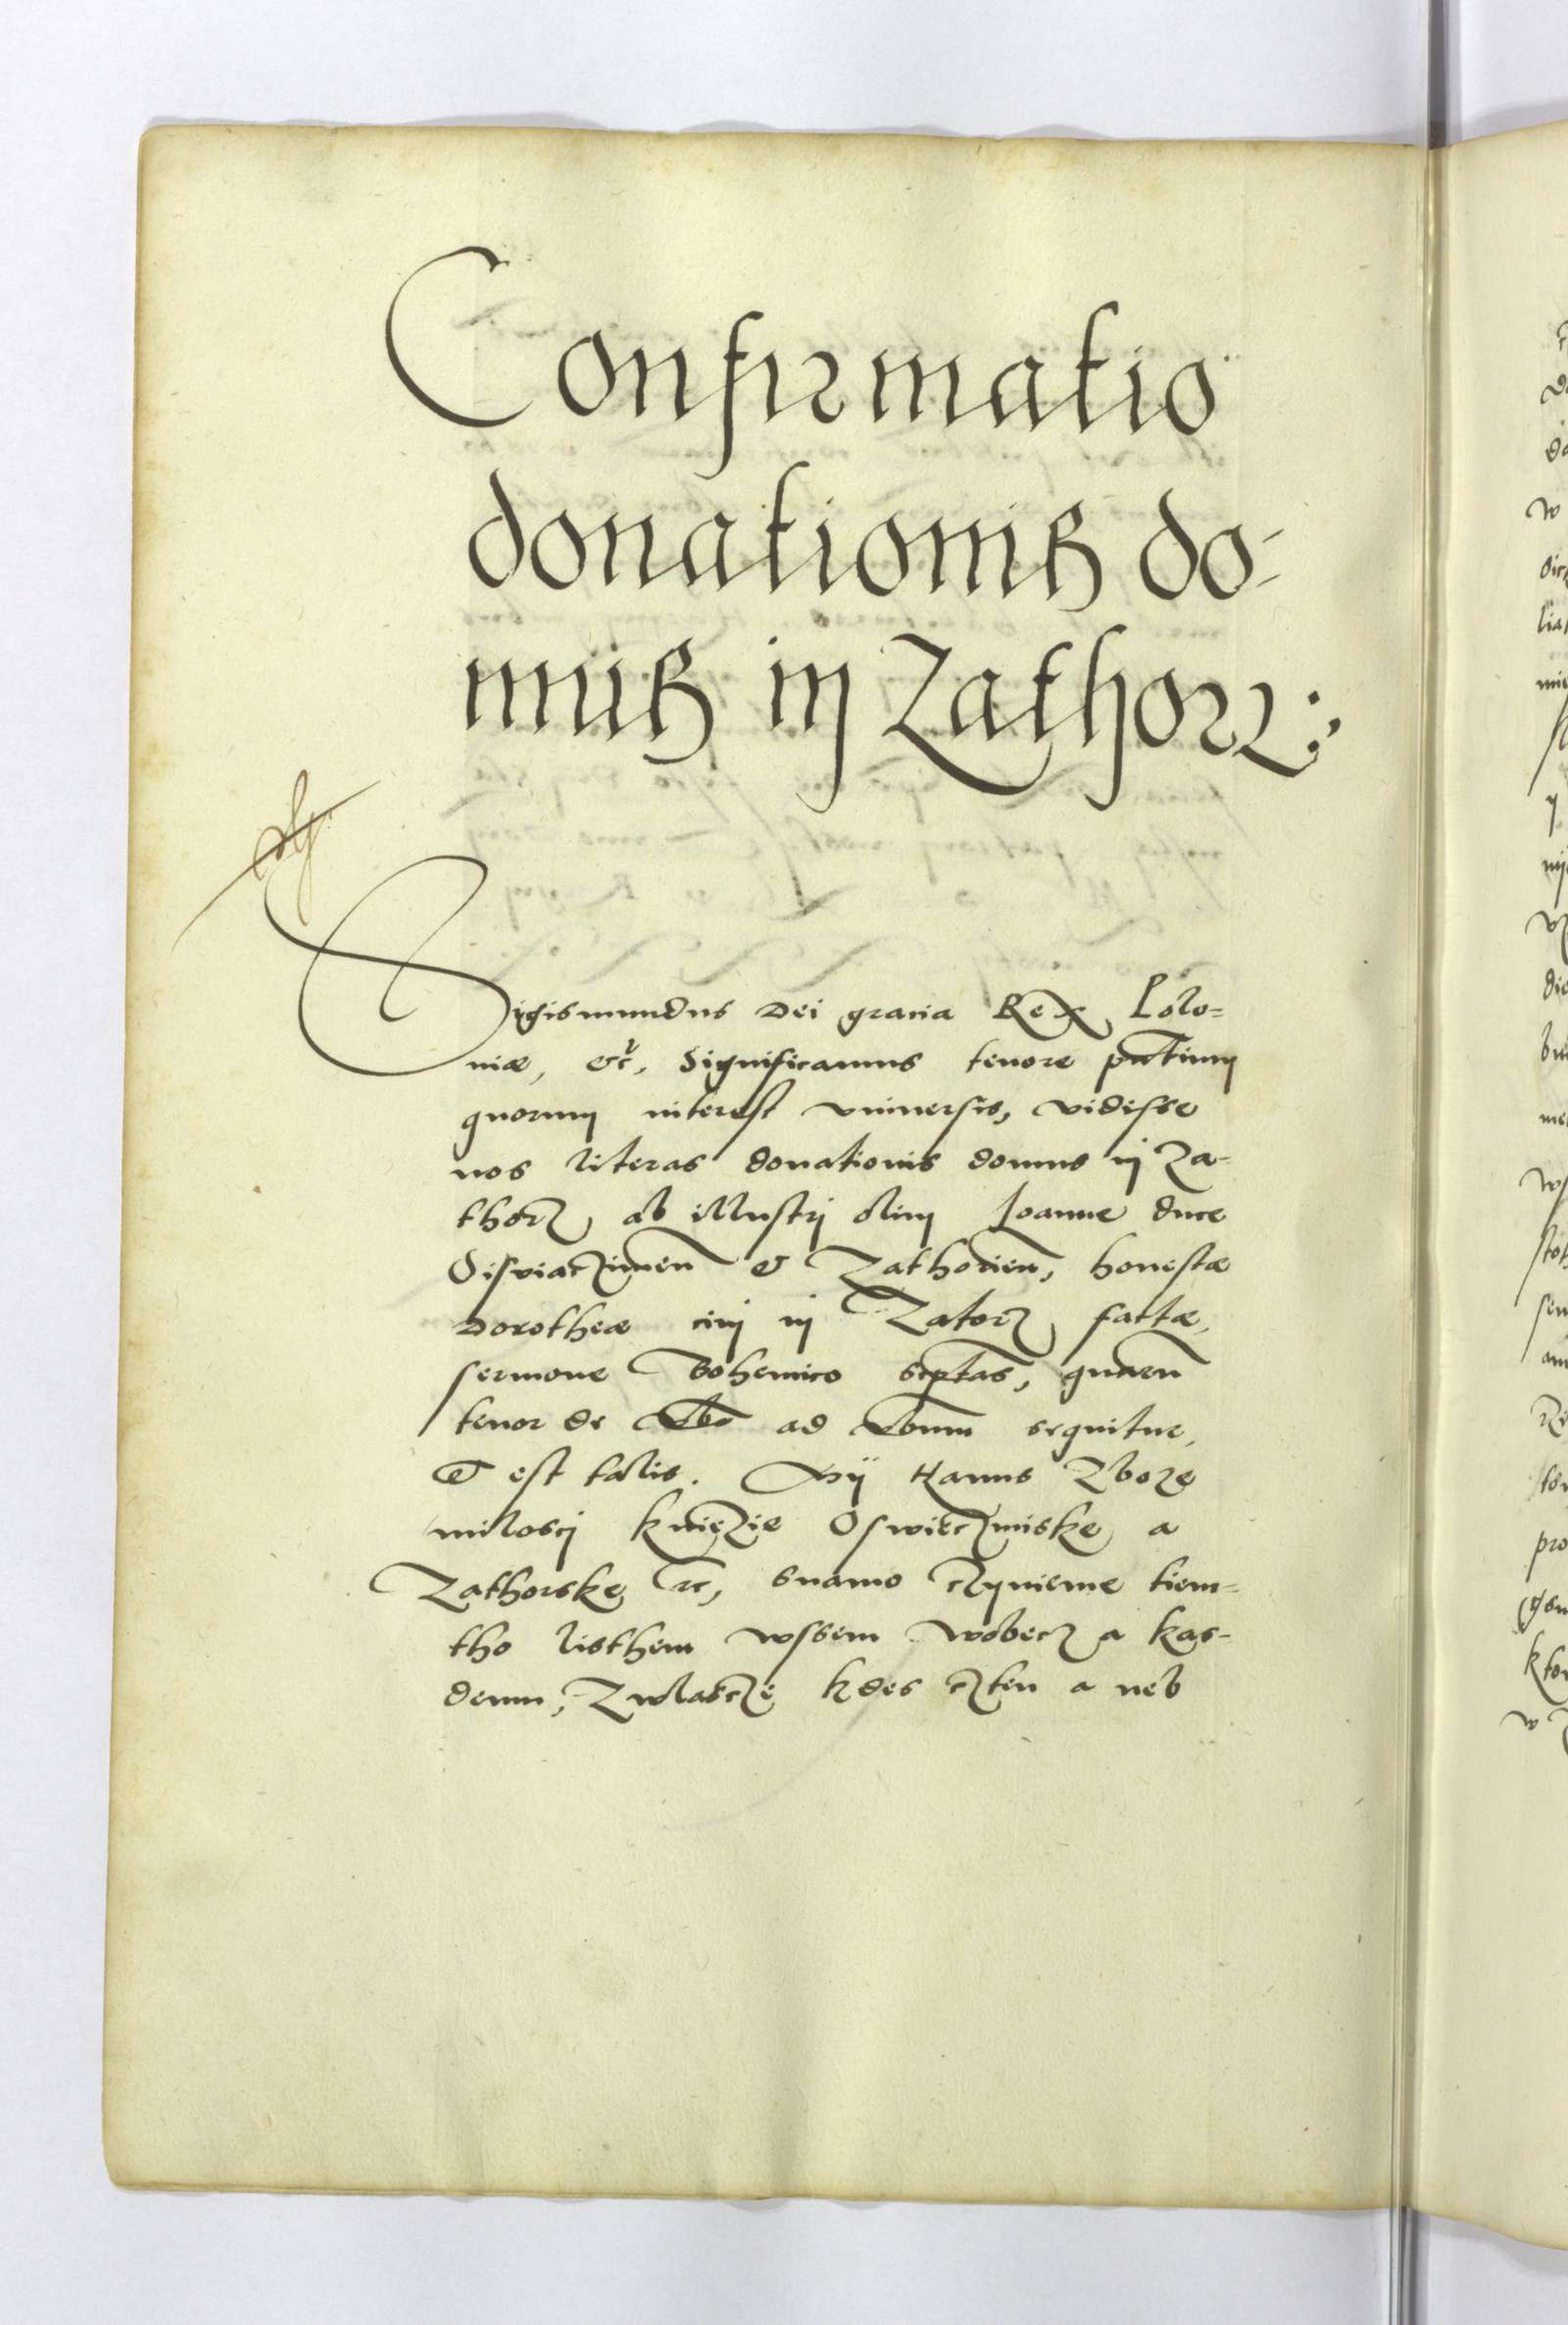 Confirmatio
donationis do-
mus in Zathorz:
Sigismundus Dei gracia Rex Polo=
niæ, etc, Significamus tenore pntium
quorum interest vniuersis, vidisse
nos literas donationis domus in Za-
thorz, ab illustrj olim Ioanne duce
Osviaczimen et Zathorien, honestæ
Dorotheæ ciuj in Zatorz factæ,
sermone Bohemico scptas, quarũ
tenor de vbo ad vbum sequitur,
et est talis. My Hanus Zboze
miloscj knięzie Oswieczimske a
Zathorske etc, snamo czynieme tiem=
tho listhem wssem wobecz a kas-
demu, Zwlascze kdes czten a neb